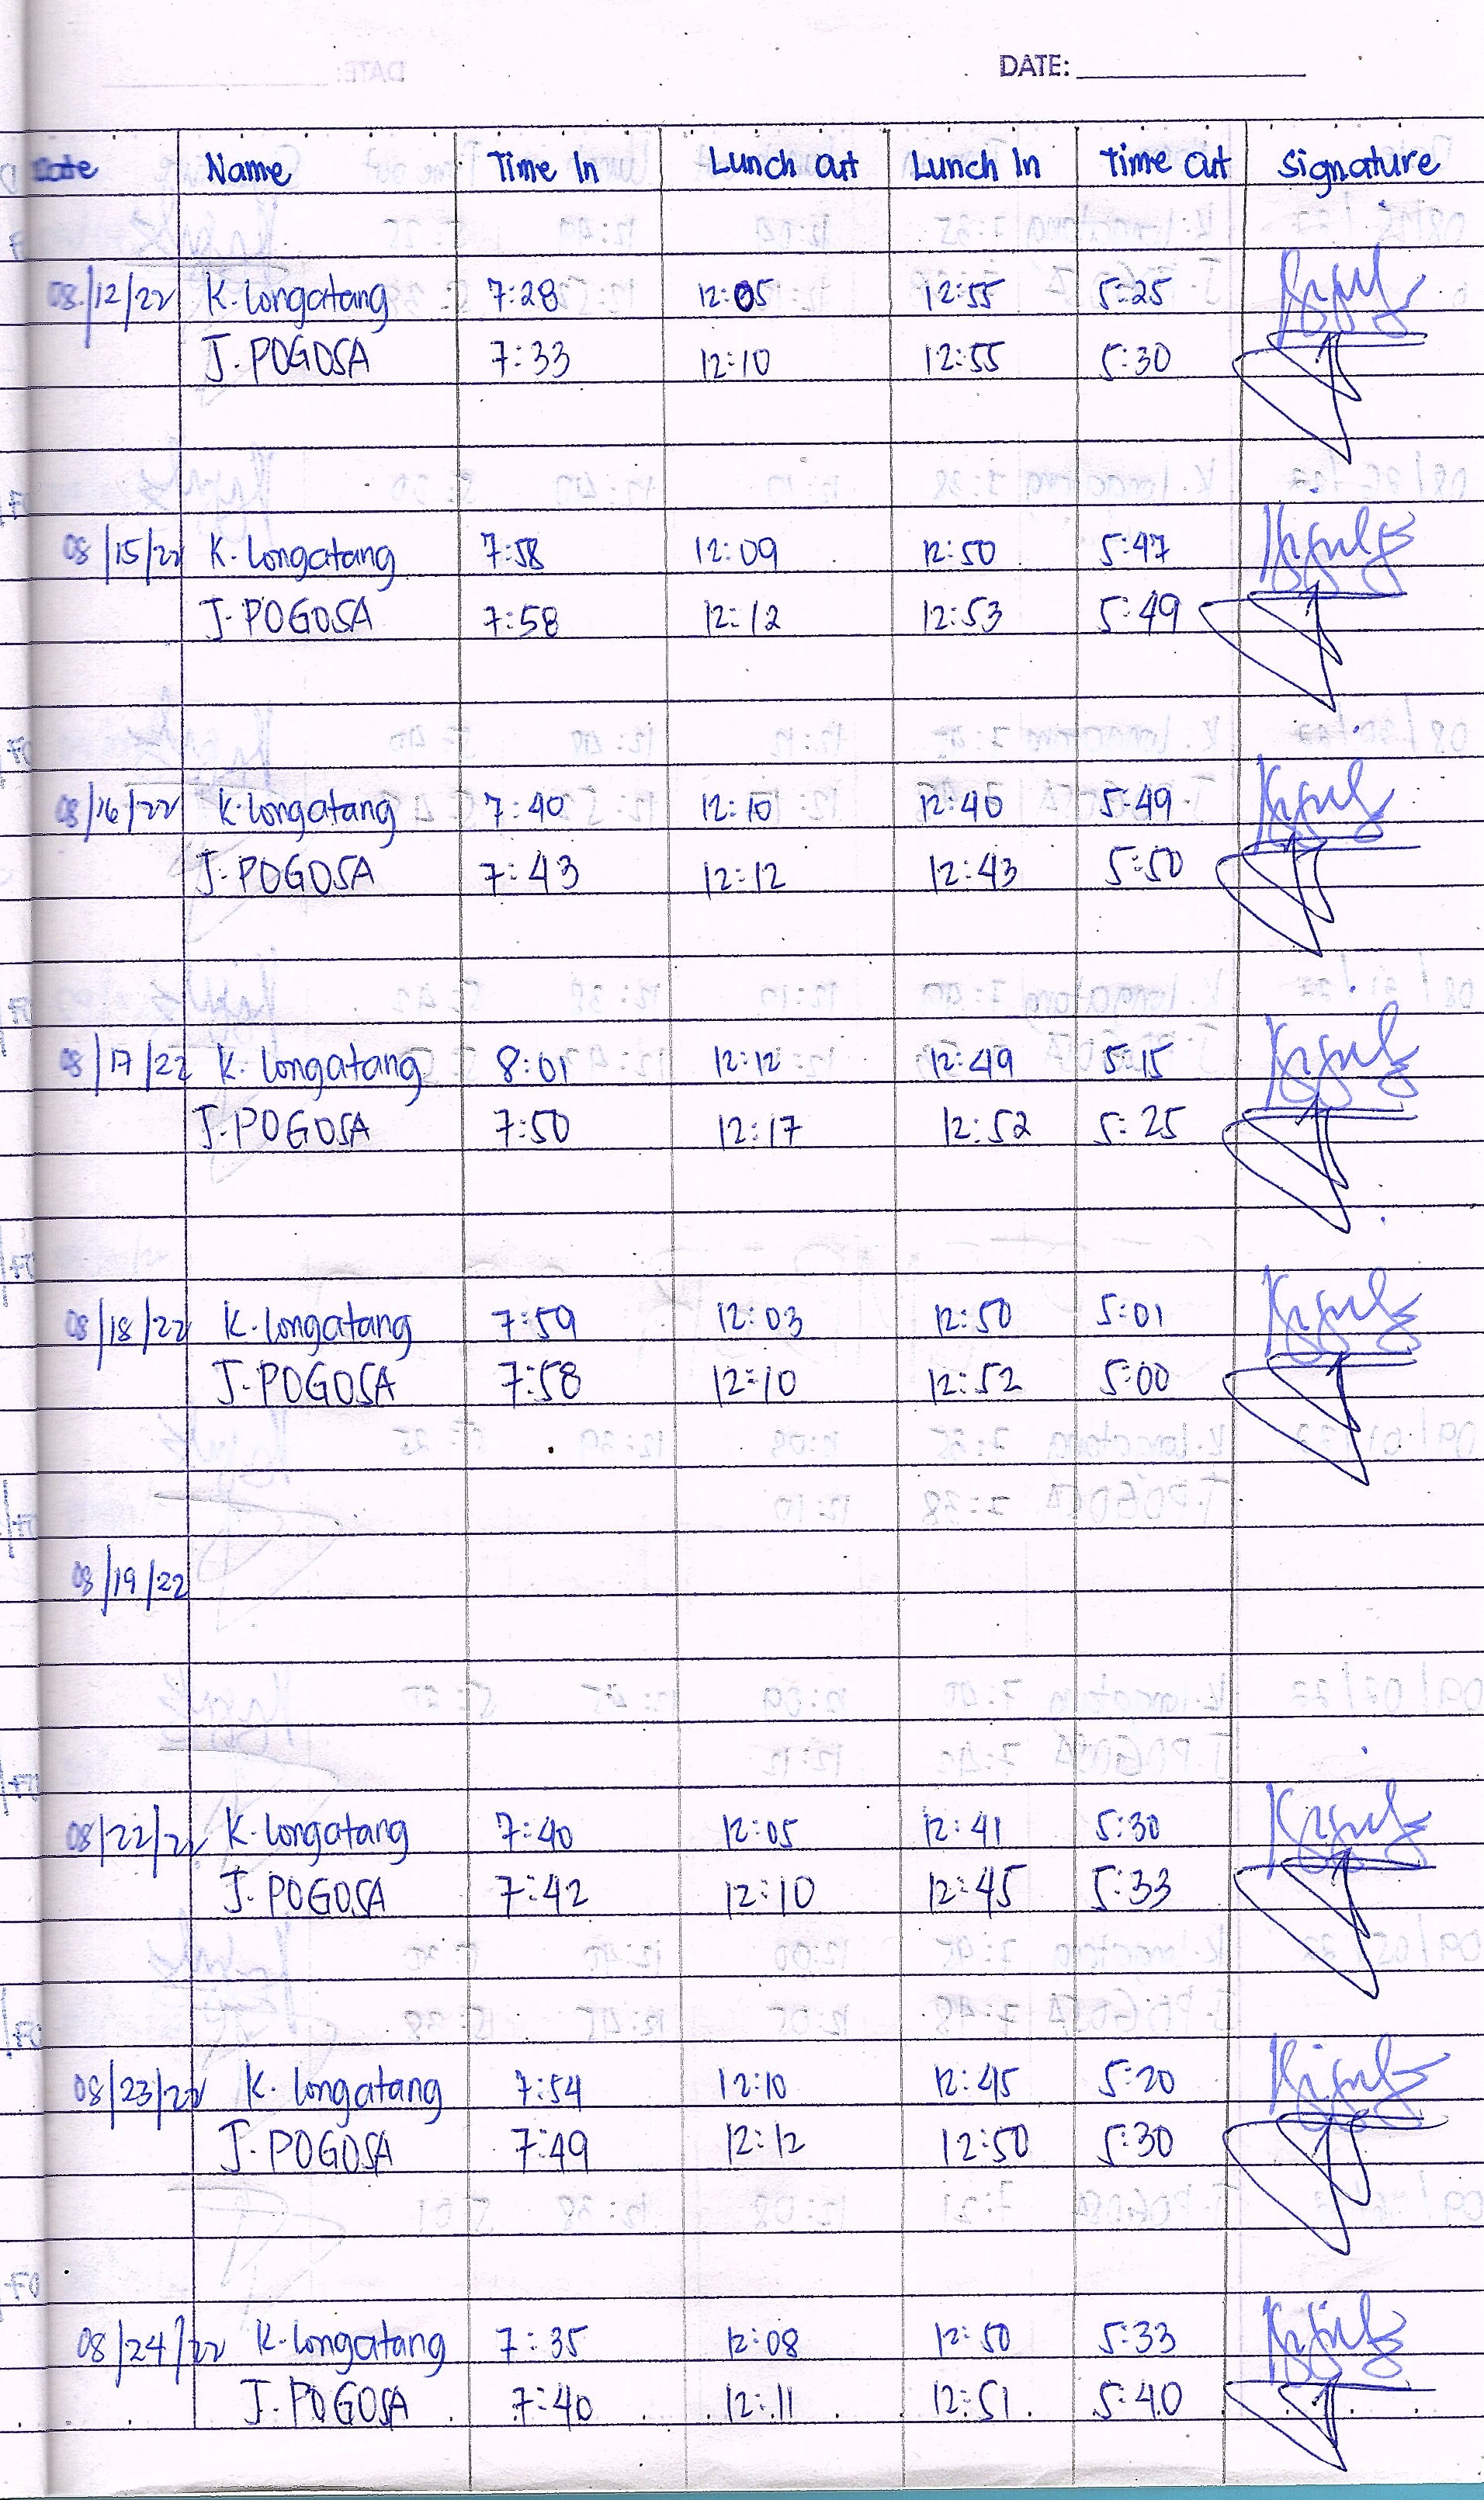 DATE:
Date Name Time In Lunch Out Lunch In Time Out Signature
08/12/22 K. Longatang 7:28 12:05 12:55 5:25
J. POGOSA 7:33 12:10 12:55 5:30
08/15/22 K. Longatang 7:58 12:09 12:50 5:47
J. POGOSA 7:58 12:12 12:53 5:49
08/16/22 K. Longatang 7:40 12:10 12:40 5:49
J. POGOSA 7:43 12:12 12:43 5:50
08/17/22 K. Longatang 8:01 12:12 12:49 5:15
J. POGOSA 7:50 12:17 12:52 5:25
08/18/22 K. Longatang 7:59 12:03 12:50 5:01
J. POGOSA 7:58 12:10 12:52 5:00
08/19/22
08/22/22 K. Longatang 7:40 12:05 12:41 5:30
J. POGOSA 7:42 12:10 12:45 5:33
08/23/22 K. Longatang 7:54 12:10 12:45 5:20
J. POGOSA 7:49 12:12 12:50 5:30
08/24/22 K. Longatang 7:35 12:08 12:50 5:33
J. POGOSA 7:40 12:11 12:51 5:40